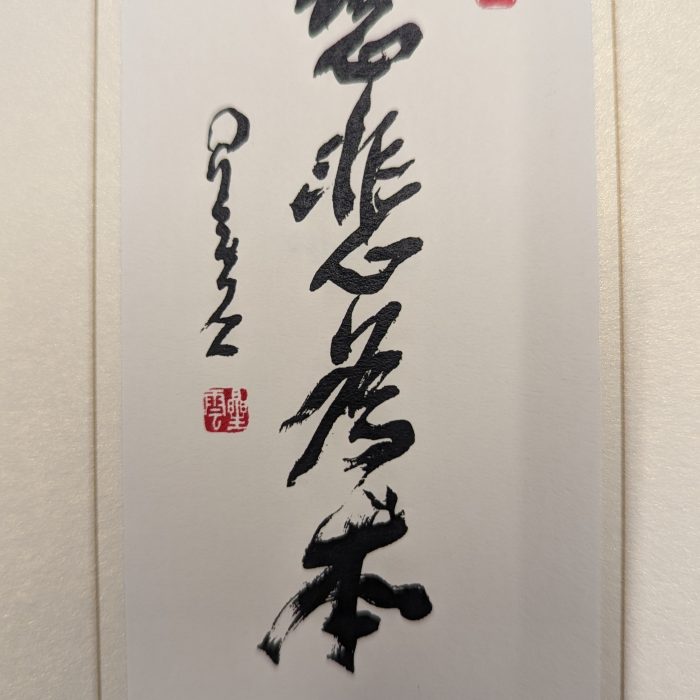 慈悲為本
星雲
星雲